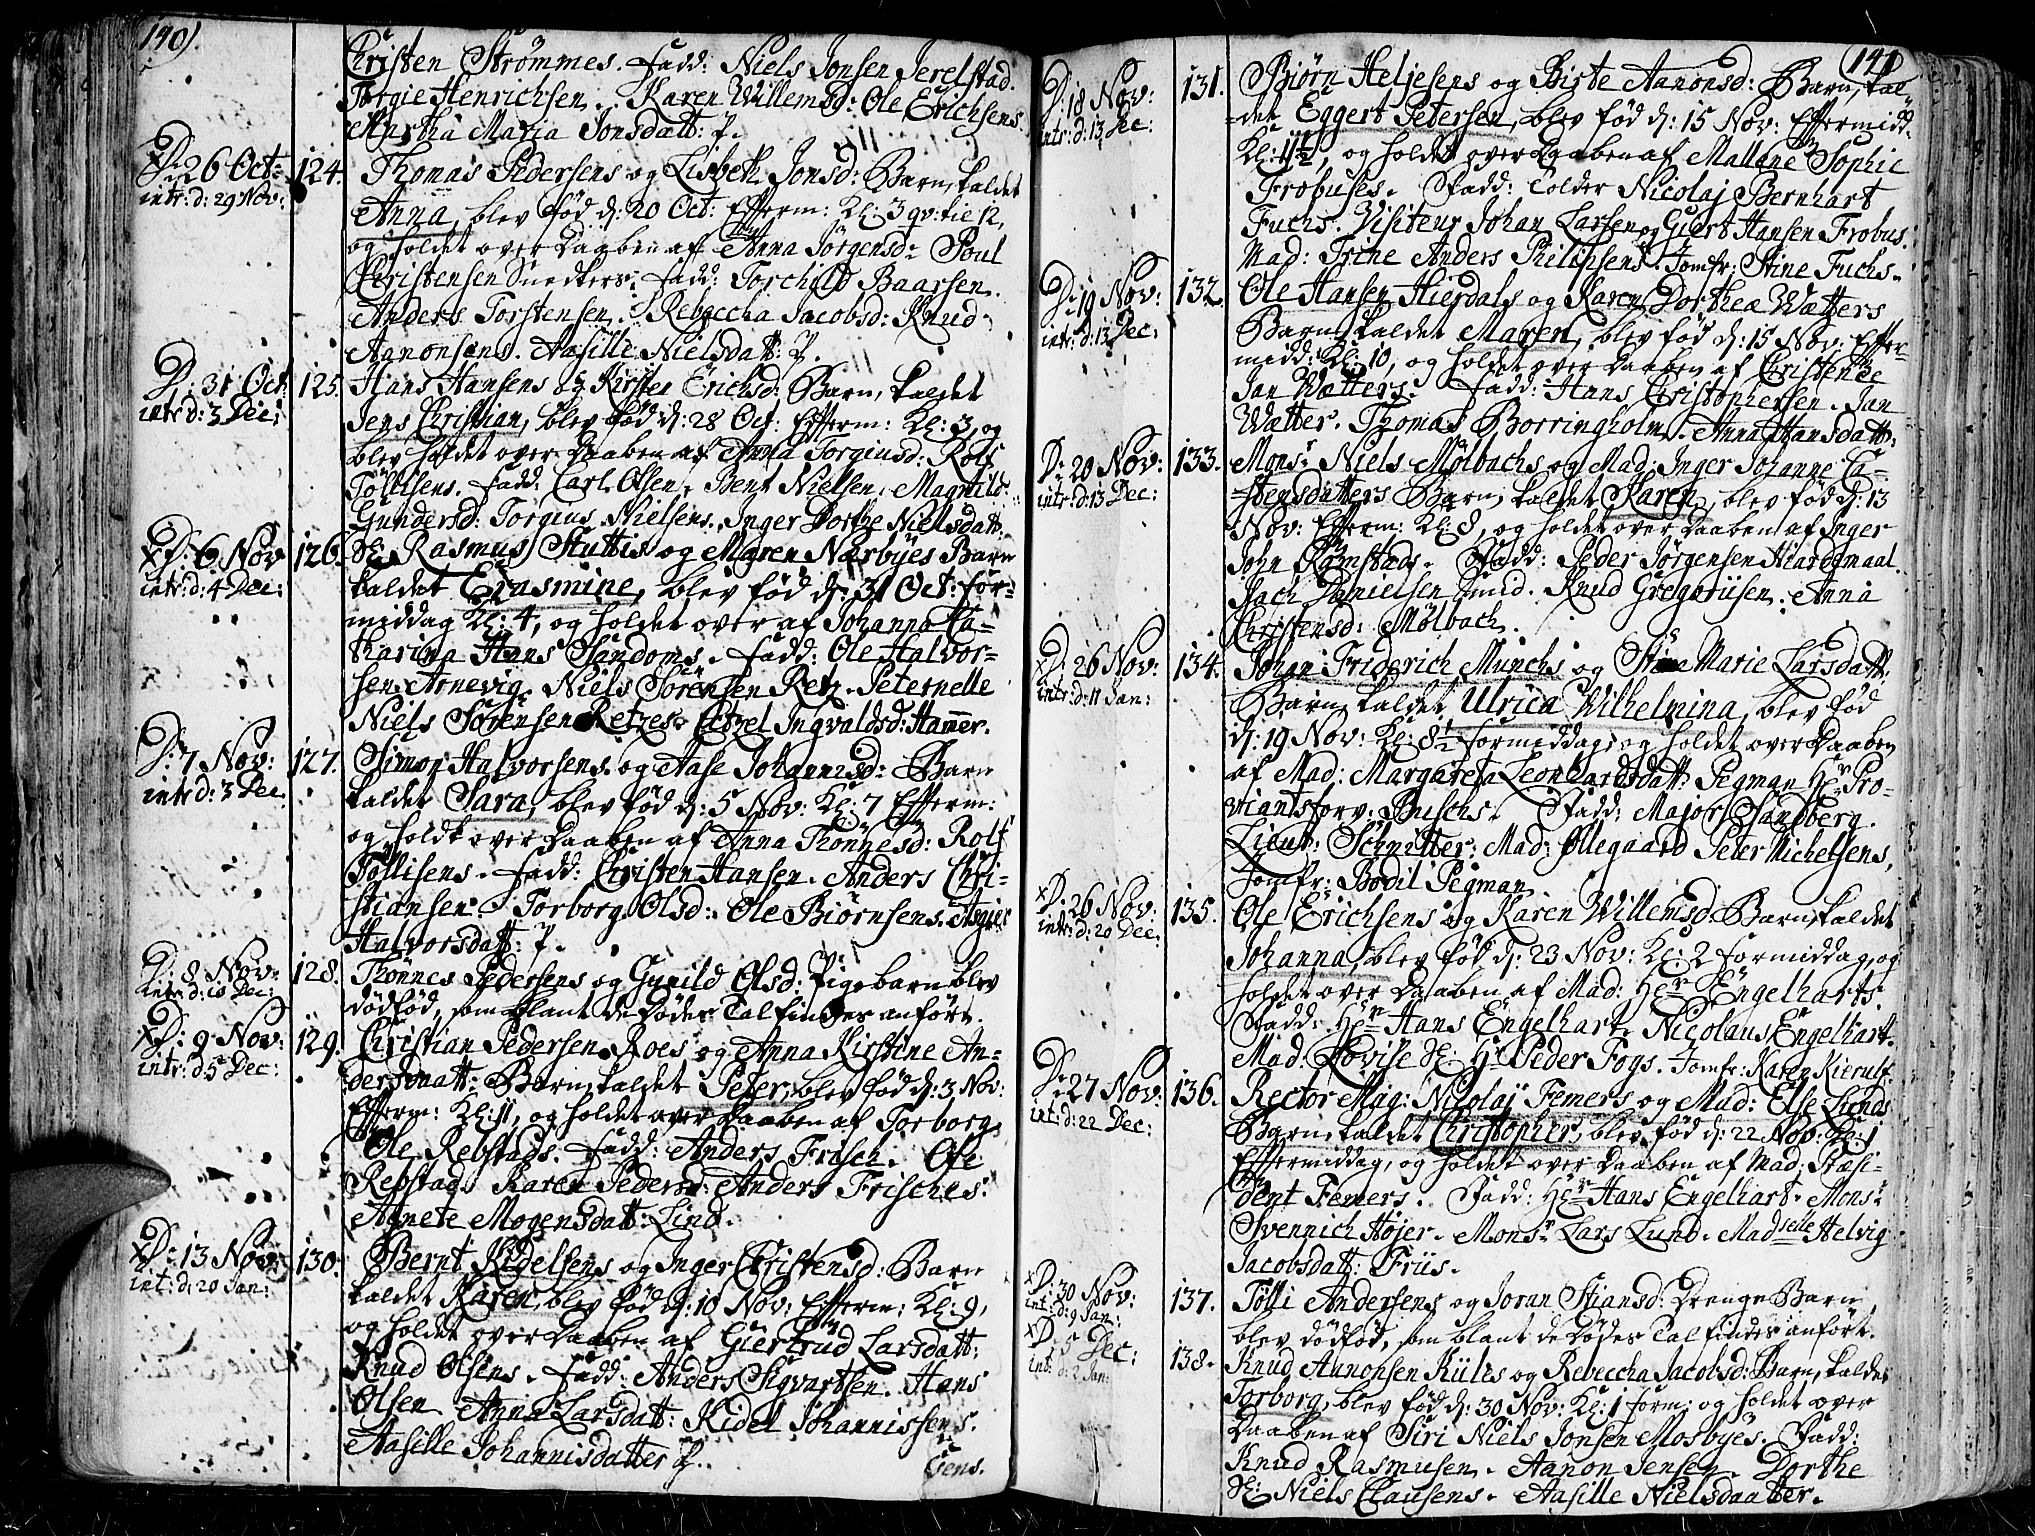 140).
Christen Strømmes. Fadd: Niels Jonsen Jerelstad.
Torgie Henrichsen. Karen Willemsd: Ole Erichsens
Martha Maria Jonsdatt: ?.
D: 26 Oct: 124. Thomas Pedersens og Lisbeth Jonsd: Barn, kaldet
intr: d: 29 Nov: Anna, blev fød d: 20 Oct: Efterm: Kl: 3 qv: tie 12,
og holdet over Daaben af Anna Jørgensd: Poul
Christensen Snedkers. Fadd: Torchild Baarsen.
Anders Torstensen. Rebeccha Jacobsd: Knud
Aanonsens. Aasille Nielsdatt: ?.
D: 31 Oct: 125. Hans Hansens og Kirsten Erichsd: Barn, kaldet
intr: d: 3 Dec: Jens Christian, blev fød d: 28 Oct: Efterm: Kl: 3, og
blev holdet over Daaben af Anna Torgiusd: Rolf
Tøllisens. Fadd: Carl Olsen. Bent Nielsen. Magnild
Gundersd: Torgius Nielsens. Inger Dorthe Nielsdatt:
x D: 6 Nov 126. Sr: Rasmus Stuttis og Maren Nærbyes Barn
intr: d: 4 Dec: kaldet Erasmine, blev fød d: 31 Oct: for-
middag Kl: 4, og holdet over af Johanna Ca-
tharina Hans Sandoms. Fadd: Ole Halvor-
sen Arnevig. Niels Sørensen Retz. Peternelle
Niels Sørensen Retzes. Etzel Ingvaldsd: Hammer.
D: 7 Nov: 127. Simon Halvorsens og Aase Johannisd: Barn
intr: d: 3 Dec: kaldet Sara, blev fød d: 5 Nov: Kl: 7 Efterm:
og holdt over Daaben af Anna Thønnesd: Rolf
Tøllisens. Fadd: Christen Hansen. Anders Chri-
stiansen. Torborg Olsd: Ole Biørnsens. Asgier
Halvorsdatt: ?.
D: 8 Nov: 128. Thønnes Pedersens og Gunild Olsd: Pigebarn blev
intr: d: 10 Dec: dødfød, som blant de Dødes Tal findes anført.
x D: 9 Nov: 129. Christian Pedersen Roes og Anna Kirstine An-
intr: d: 5 Dec: dersdatt: Barn, kaldet Peter, blev fød d: 3 Nov:
Efterm: Kl: 11, og holdet over Daaben af Torborg
Ole Rebstads. Fadd: Anders Frisch. Ole
Rebstad. Karen Pedersd: Anders Frisches.
Agnete Mogensdatt: Lind.
x D: 13 Nov: 130. Bernt Kidelsens og Inger Christensd: Barn
int: d: 20 Jan: kaldet Karen, blev fød d: 10 Nov: Efterm: Kl: 9,
og holdet over Daaben af Giertrud Larsdatt:
Knud Olsens. Fadd: Anders Sigvartsen. Hans
Olsen Anna Larsdatt: Kidel Johannissens.
Aasille Johannisdatter ?.
Jens.
141
D: 18 Nov: 131. Biørn Heljesens og Birte Aanonsd: Barn, kal-
intr: d: 13 Dec: det Eggert Petersen, blev fød d: 15 Nov: Eftermidd:
Kl: 11½, og holdet over Daaben af Mallene Sophie
Frobuses. Fadd: Tolder Nicolaj Bernhart
Fuchs. Visiteur Johan Larsen og Giert Hansen Frobus.
Mad: Trine Anders Philipsens. Jomfr: Stine Fuchs.
D: 19 Nov: 132. Ole Hansen Hierdals og Karen Dorthea Wætters
intr: d: 13 Dec: Barn, kaldet Maren, blev fød d: 15 Nov: Efter-
midd: Kl: 10, og holdet over Daaben af Christence
Jan Wætters. Fadd: Hans Christophersen. Jan
Wætter. Thomas Borringholm. Anna Hansdatt:
D: 20 Nov: 133. Monsr Niels Mølbachs og Mad: Inger Johanne Ca-
intr: d: 13 Dec: stensdatters Barn, kaldet Karen, blev fød d: 13
Nov: Efterm: Kl: 8, og holdet over Daaben af Inger
John Rømstads. Fadd: Peder Jørgensen Hiardemaal.
Zach Danielsen Smid. Knud Gregoriisen. Anna
Christensd: Mølbach.
x D: 26 Nov: 134. Johan Friderich Munchs og Stina Marie Larsdatt:
intr: d: 11 Jan: Barn, kaldet Ulrica Wilhelmina, blev fød
d: 19 Nov: Kl: 8½ formiddag, og holdet over Daaben
af Mad: Margareta Leonhardsdatt: Pegman Hr Pro-
viantsforv: Buschs. Fadd: Major Sandberg.
Lieut: Schnitter. Mad: Øllegaard Peter Michelsens.
Jomfr: Bodil Pegman.
x D: 26 Nov: 135. Ole Erichsens og Karen Willemsd: Barn, kaldet
intr: d: 20 Dec: Johanna, blev fød d: 23 Nov: Kl: 2 formiddag, og
holdet over Daaben af Mad: Hr Engelharts.
Fadd: Hr Hans Engelhart. Nicolaus Engelhart.
Mad: Lovise Sr: Hr Peder Fogs. Jomfr: Karen Kierulf.
D: 27 Nov: 136. Rector Mag: Nicolaj Femers og Mad: Else Lunds
int: d: 22 Dec: Barn, kaldet Christopher, blev fød d: 22 Nov: Kl: 1
Eftermiddag, og holdet over Daaben af Mad: Præsi-
dent Femers. Fadd: Hr Hans Engelhart. Monsr
Svennich Højer. Monsr Lars Lund. Madselle Helvig
Jacobsdatt: Friis.
x D: 30 Nov: 137. Tølli Andersens og Joran Stiansd: Drenge Barn
int: d: 9 Jan: blev dødfød, som blant de Dødes Tal findes anført.
x D: 5 Dec: 138. Knud Aanonsen Kules og Rebeccha Jacobsd: Barn, kaldet
int: d: 2 Jan: Torborg, blev fød d: 30 Nov: Kl: 1 form: og holdet over
Daaben af Siri Niels Jonsen Mosbyes. Fadd:
Knud Rasmusen. Aanon Jensen. Dorthe
Sr: Niels Clausens. Aasille Nielsdaatter.